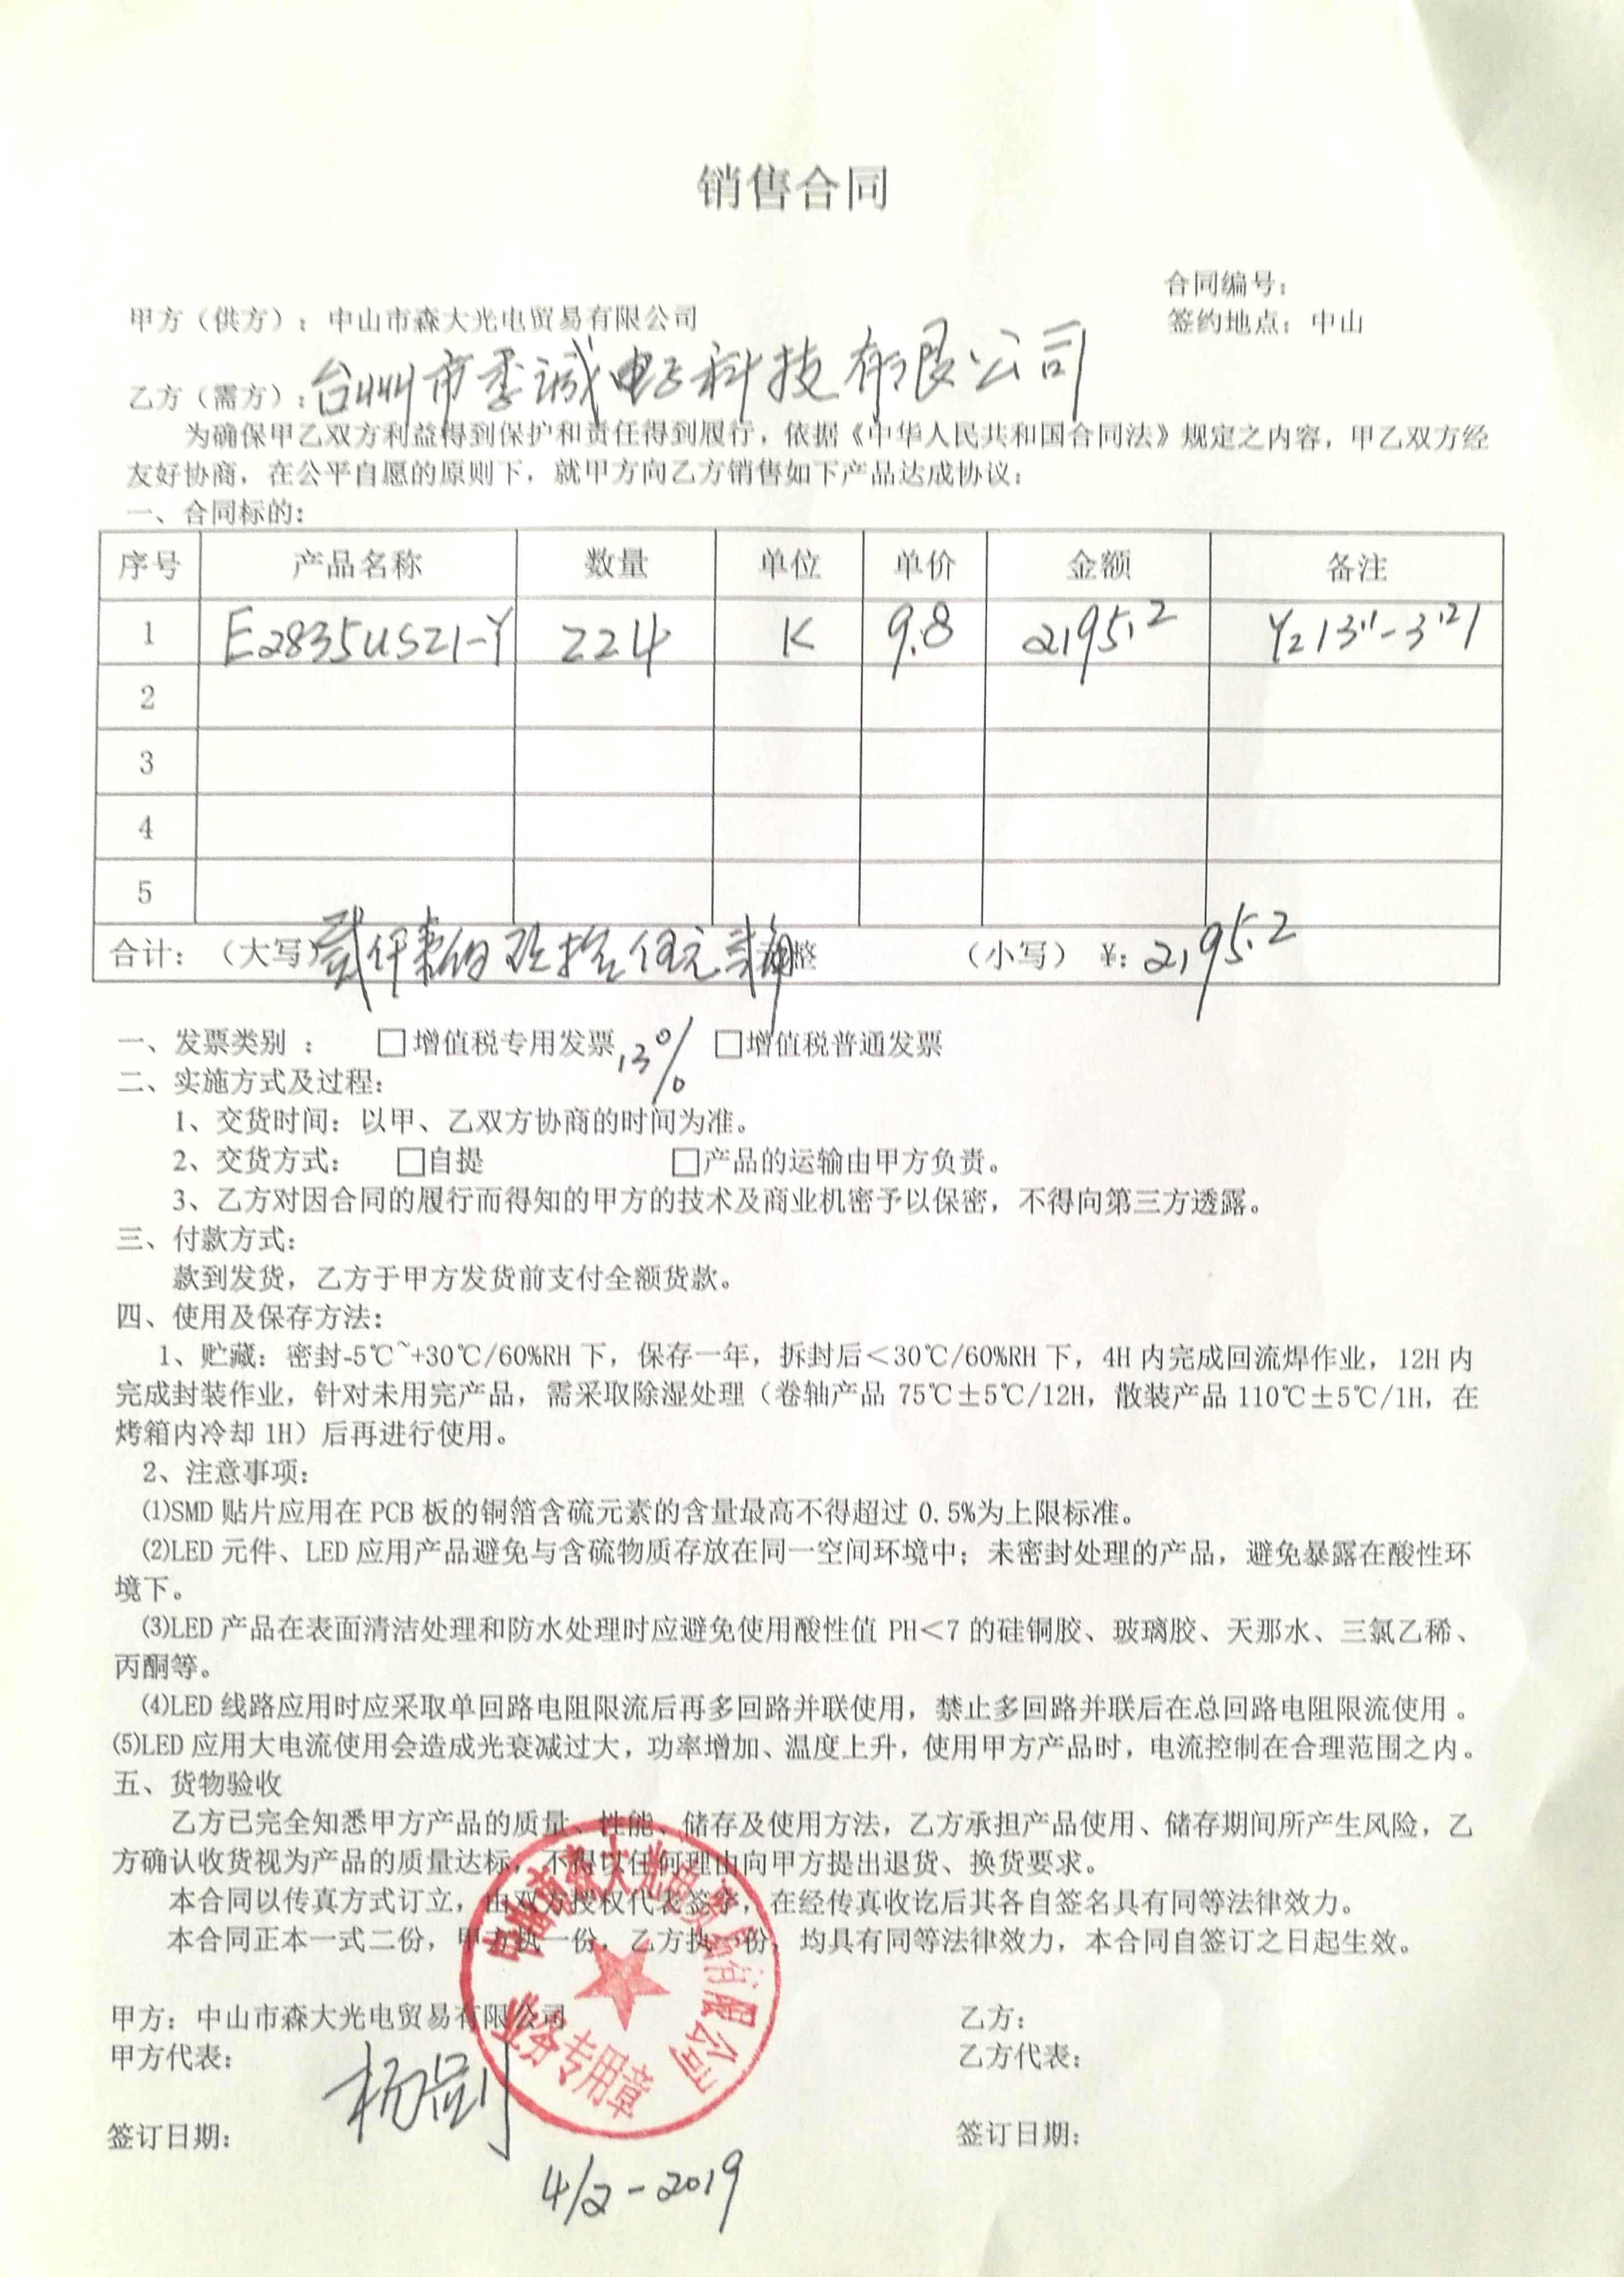 销售合同
合同编号：
甲方（供方）：中山市森大光电贸易有限公司
签约地点：中山
乙方（需方）：台州市季诚电子科技有限公司
为确保甲乙双方利益得到保护和责任得到履行，依据《中华人民共和国合同法》规定之内容，甲乙双方经
友好协商，在公平自愿的原则下，就甲方向乙方销售如下产品达成协议：
一、合同标的：
序号 产品名称 数量 单位 单价 金额 备注
1 E2835USZ1-Y 224 K 9.8 2195.2
2
3
4
5
合计：（大写）贰仟壹佰玖拾伍元贰角整 （小写）¥：2195.2
一、发票类别 ： □增值税专用发票13% □增值税普通发票
二、实施方式及过程：
1、交货时间：以甲、乙双方协商的时间为准。
2、交货方式： □自提 □产品的运输由甲方负责。
3、乙方对因合同的履行而得知的甲方的技术及商业机密予以保密，不得向第三方透露。
三、付款方式：
款到发货，乙方于甲方发货前支付全额货款。
四、使用及保存方法：
1、贮藏：密封-5℃~+30℃/60%RH 下，保存一年，拆封后＜30℃/60%RH 下，4H 内完成回流焊作业，12H 内
完成封装作业，针对未用完产品，需采取除湿处理（卷轴产品 75℃±5℃/12H，散装产品 110℃±5℃/1H，在
烤箱内冷却 1H）后再进行使用。
2、注意事项：
⑴SMD 贴片应用在 PCB 板的铜箔含硫元素的含量最高不得超过 0.5%为上限标准。
⑵LED 元件、LED 应用产品避免与含硫物质存放在同一空间环境中；未密封处理的产品，避免暴露在酸性环
境下。
⑶LED 产品在表面清洁处理和防水处理时应避免使用酸性值 PH＜7 的硅铜胶、玻璃胶、天那水、三氯乙稀、
丙酮等。
⑷LED 线路应用时应采取单回路电阻限流后再多回路并联使用，禁止多回路并联后在总回路电阻限流使用 。
⑸LED 应用大电流使用会造成光衰减过大，功率增加、温度上升，使用甲方产品时，电流控制在合理范围之内。
五、货物验收
乙方已完全知悉甲方产品的质量、性能、储存及使用方法，乙方承担产品使用、储存期间所产生风险，乙
方确认收货视为产品的质量达标，不得以任何理由向甲方提出退货、换货要求。
本合同以传真方式订立，由双方授权代表签字，在经传真收讫后其各自签名具有同等法律效力。
本合同正本一式二份，甲方执一份，乙方执一份，均具有同等法律效力，本合同自签订之日起生效。
中山市森大光电贸易有限公司
业务专用章
甲方：中山市森大光电贸易有限公司
乙方：
甲方代表：
乙方代表：
签订日期：
签订日期：
4/2-2019